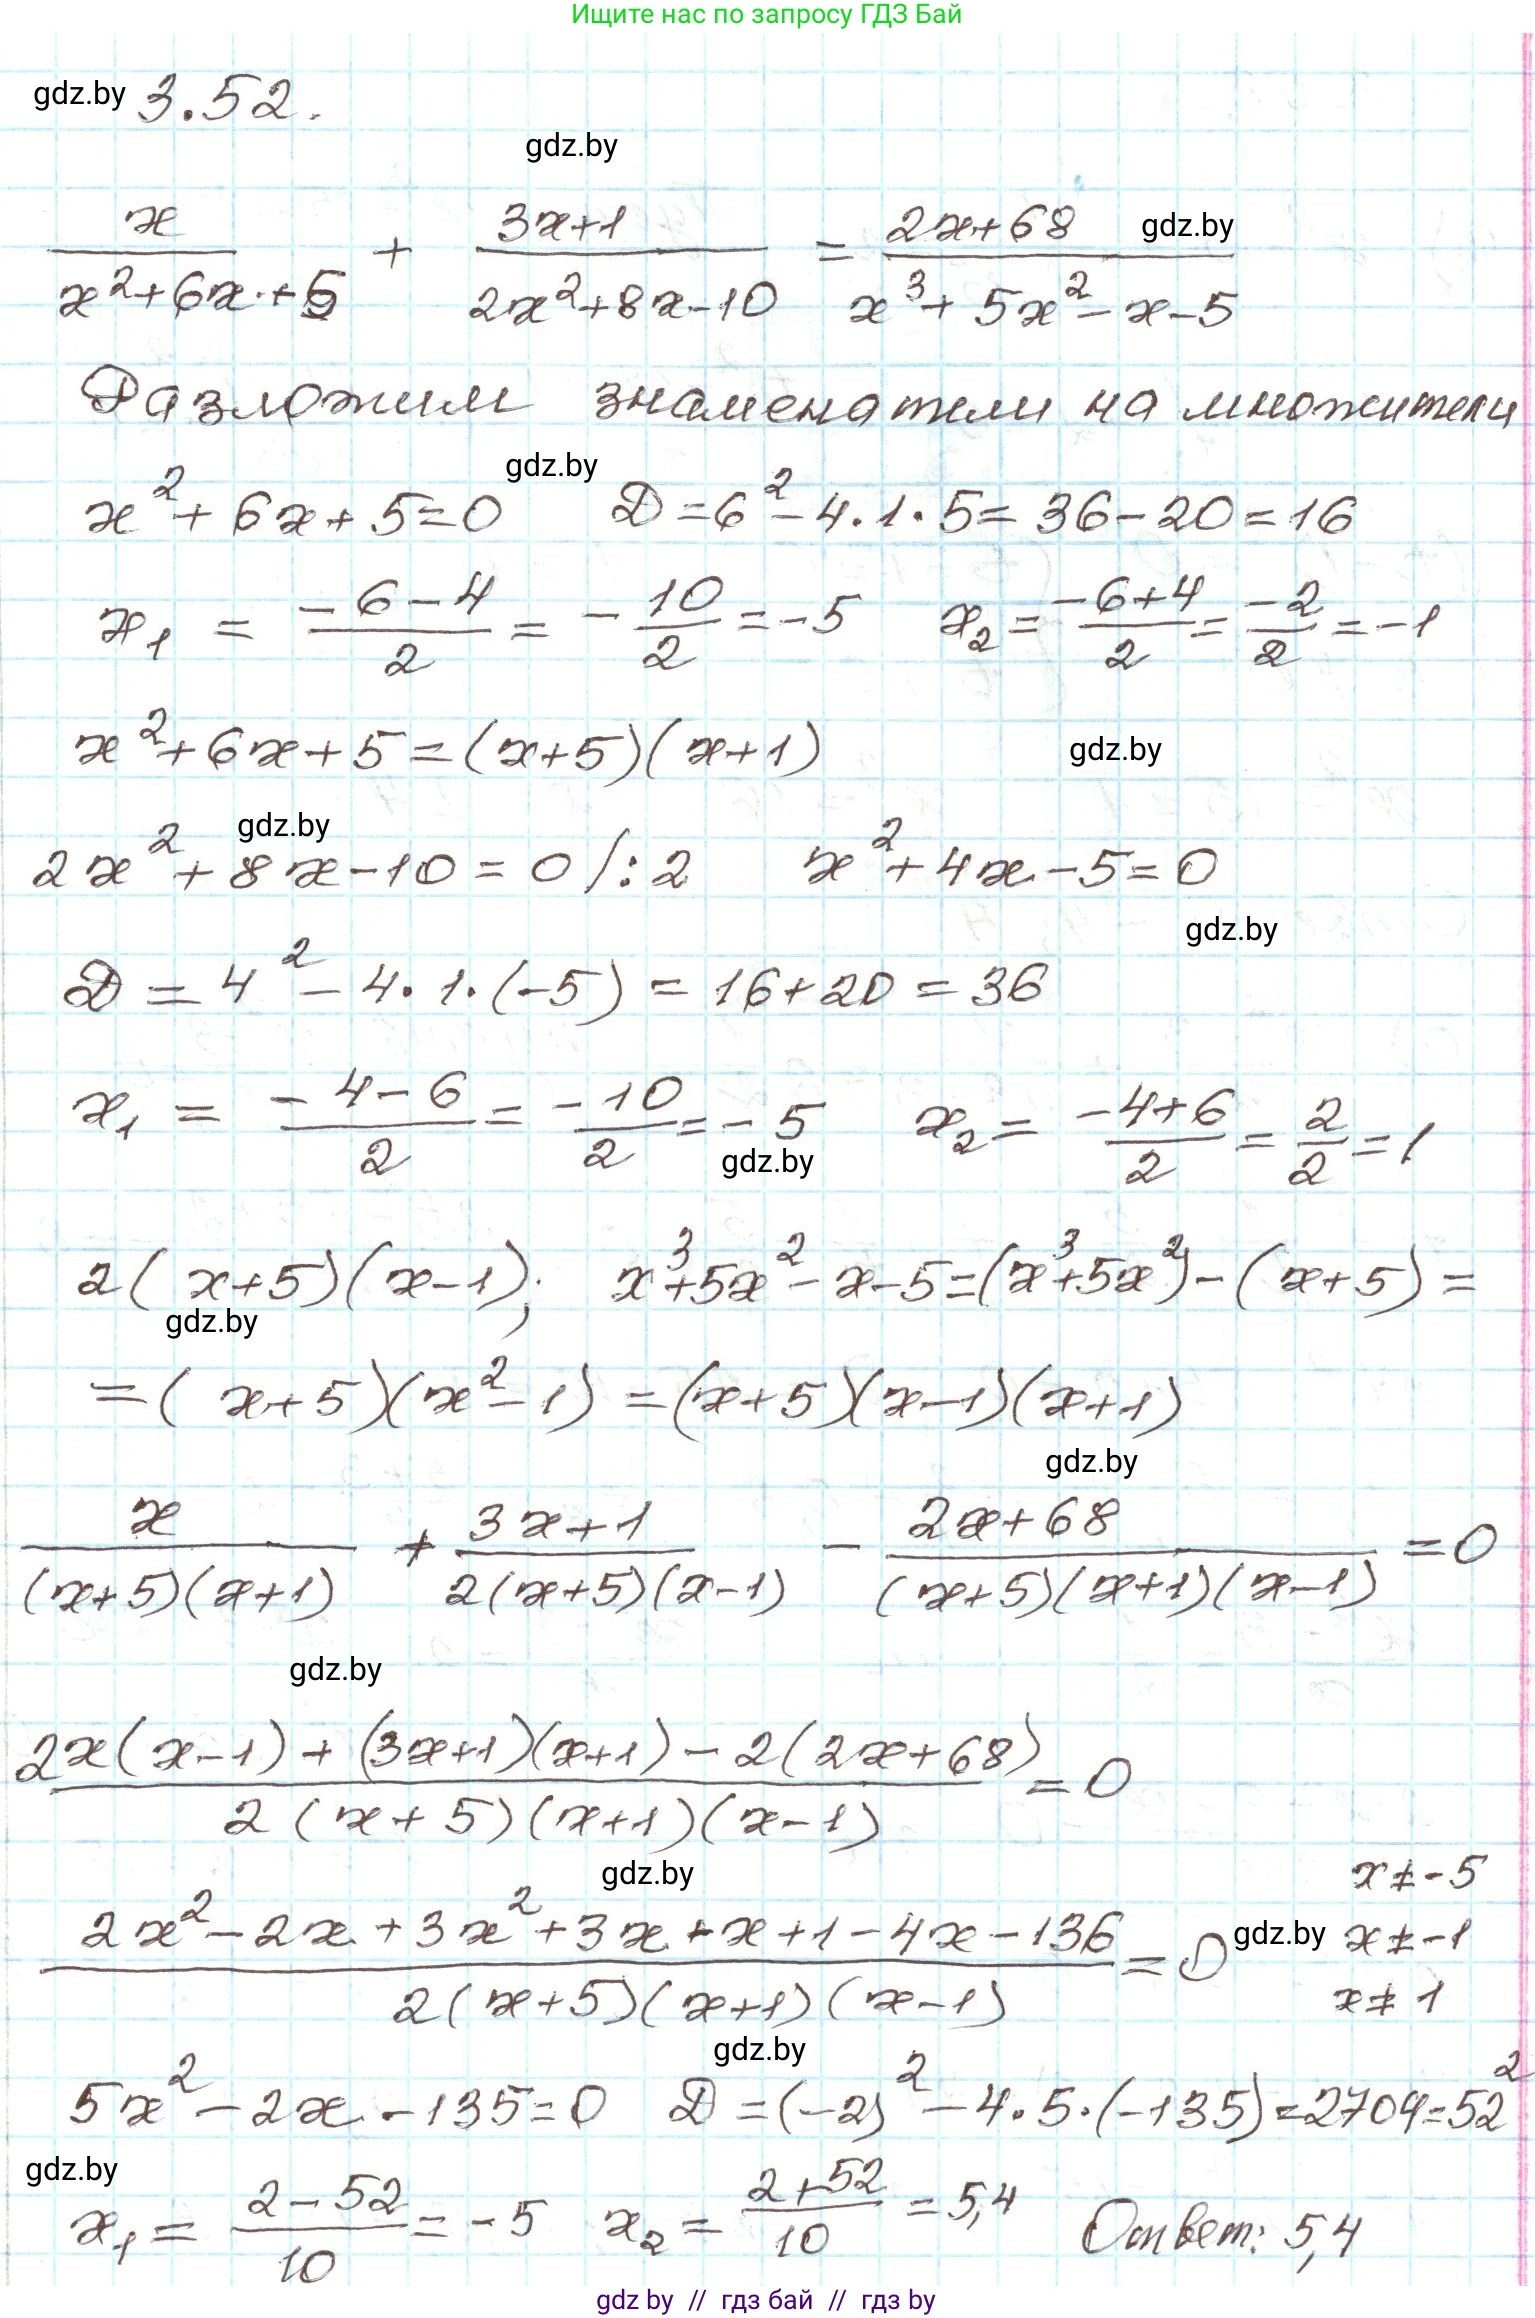 Ищите нас по запросу ГДЗ Бай
gdz.by 3.52.
gdz.by
x/(x²+6x+5) + (3x+1)/(2x²+8x-10) = (2x+68)/(x³+5x²-x-5) gdz.by
Разложим знаменатели на множители
gdz.by
x²+6x+5=0 D=6²-4·1·5=36-20=16
x₁ = (-6-4)/2 = -10/2 = -5 x₂ = (-6+4)/2 = -2/2 = -1
x²+6x+5=(x+5)(x+1) gdz.by
gdz.by
2x²+8x-10=0 /:2 x²+4x-5=0
gdz.by
D = 4²-4·1·(-5) = 16+20 = 36
x₁ = (-4-6)/2 = -10/2 = -5 x₂ = (-4+6)/2 = 2/2 = 1
gdz.by
2(x+5)(x-1); x³+5x²-x-5=(x³+5x²)-(x+5)=
gdz.by
=(x+5)(x²-1)=(x+5)(x-1)(x+1)
gdz.by
x/((x+5)(x+1)) + (3x+1)/(2(x+5)(x-1)) - (2x+68)/((x+5)(x+1)(x-1)) = 0
gdz.by
(2x(x-1)+(3x+1)(x+1)-2(2x+68))/(2(x+5)(x+1)(x-1)) = 0
gdz.by
x≠-5
(2x²-2x+3x²+3x+x+1-4x-136)/(2(x+5)(x+1)(x-1)) = 0 gdz.by x≠-1
x≠1
gdz.by
5x²-2x-135=0 D=(-2)²-4·5·(-135)=2704=52²
gdz.by
x₁ = (2-52)/10 = -5 x₂ = (2+52)/10 = 5,4 Ответ: 5,4
gdz by // гдз бай // гдз by